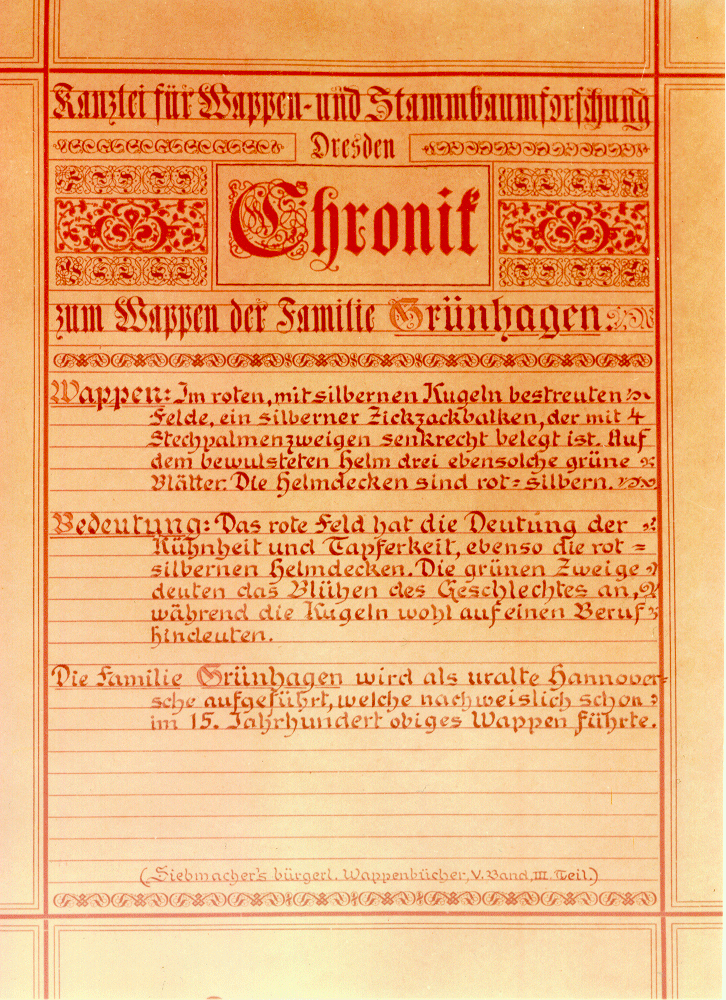 Kanzlei für Wappen- und Stammbaumforschung
Dresden
Chronik
zum Wappen der Familie Grünhagen.
Wappen: Im roten, mit silbernen Kugeln bestreuten
Felde, ein silberner Zickzackbalken, der mit 4
Stechpalmenzweigen senkrecht belegt ist. Auf
dem bewulsteten Helm drei ebensolche grüne
Blätter. Die Helmdecken sind rot = silbern.
Bedeutung: Das rote Feld hat die Deutung der
Kühnheit und Tapferkeit, ebenso die rot =
silbernen Helmdecken. Die grünen Zweige
deuten das Blühen des Geschlechtes an,
während die Kugeln wohl auf einen Beruf
hindeuten.
Die Familie Grünhagen wird als uralte Hannover=
sche aufgeführt, welche nachweislich schon
im 15. Jahrhundert obiges Wappen führte.
(Siebmacher's bürgerl. Wappenbücher, V. Band, III. Teil.)